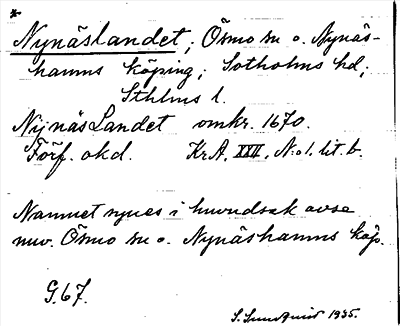 *
Nynäslandet; Ösmo sn o. Nynäs-
hamns köping; Sotholms hd;
Sthlms l.
Nynäs Landet omkr. 1670.
Förf. okd. KrA. XXII, N:o 1. lit. b.
Namnet synes i huvudsak avse
nuv. Ösmo sn o. Nynäshamns köp.
G. 67.
1935.